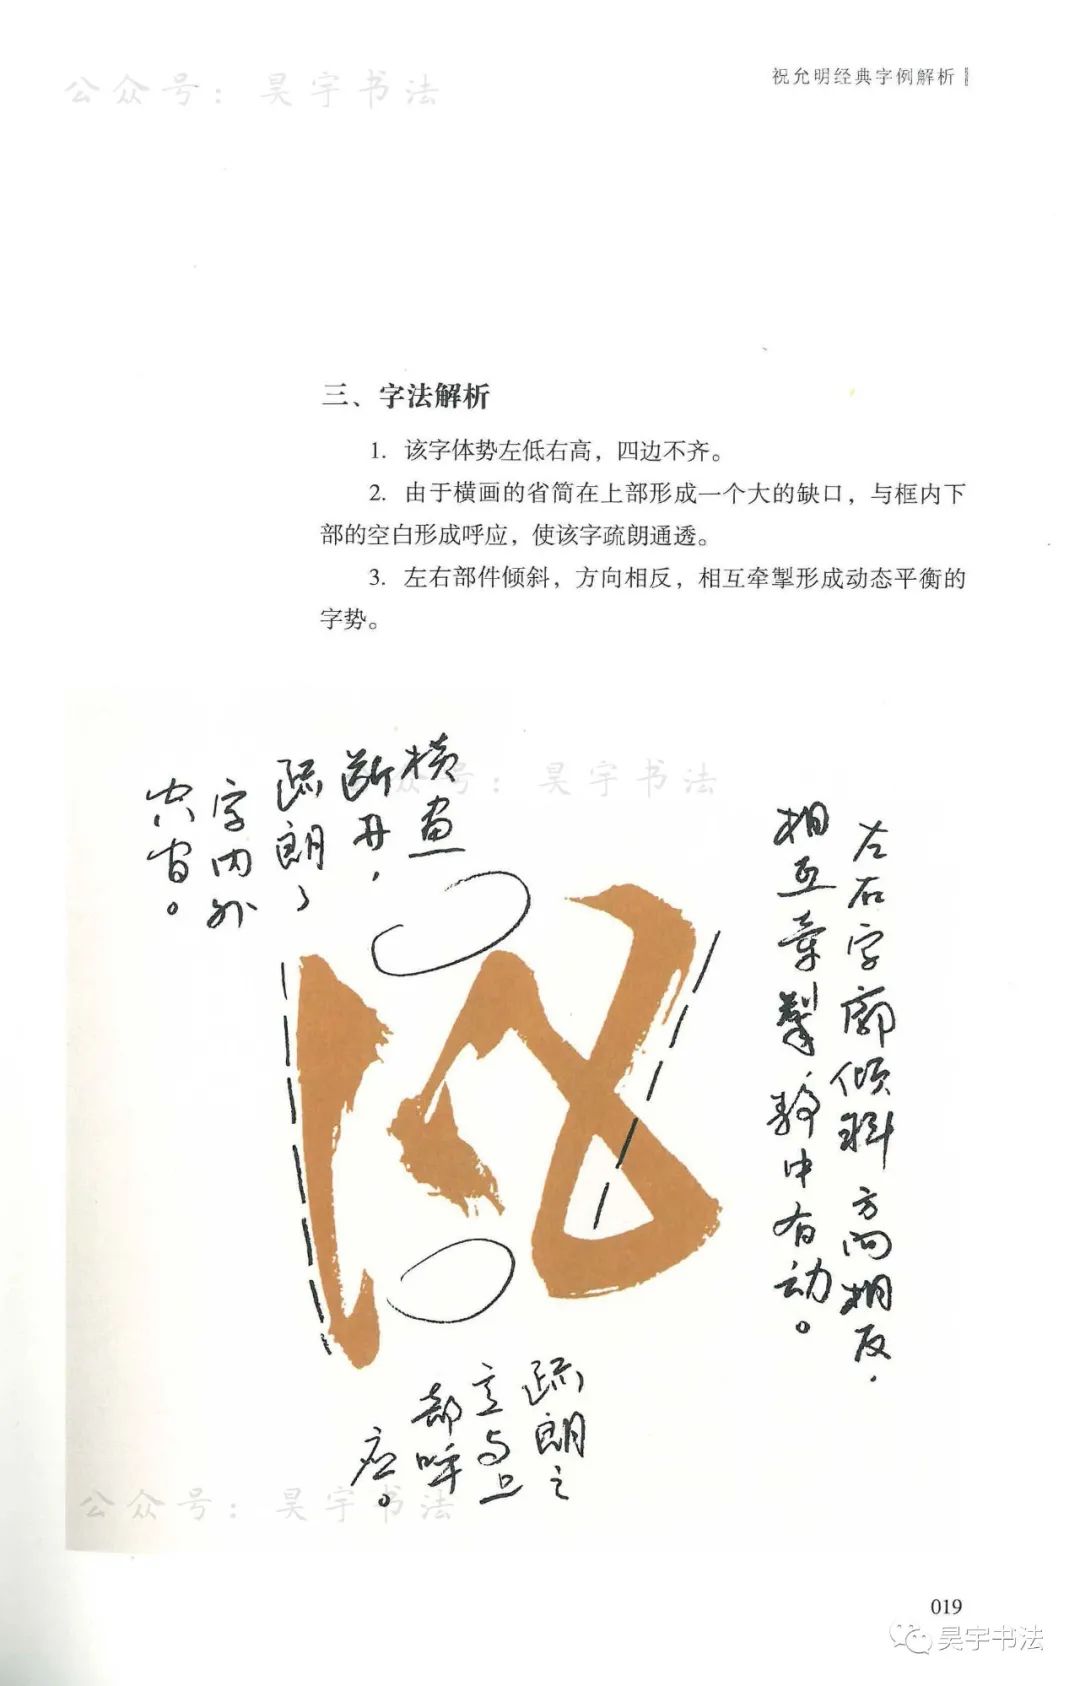 公众号：昊宇书法
祝允明经典字例解析
三、字法解析
1. 该字体势左低右高，四边不齐。
2. 由于横画的省简在上部形成一个大的缺口，与框内下
部的空白形成呼应，使该字疏朗通透。
3. 左右部件倾斜，方向相反，相互牵掣形成动态平衡的
字势。
公众号：昊宇书法
横画
断开，
疏朗了
字内外
空间。
左右字廓倾斜方向相反，
相互牵掣，静中有动。
疏朗之
空与上
部呼
应。
公众号：昊宇书法
019
昊宇书法